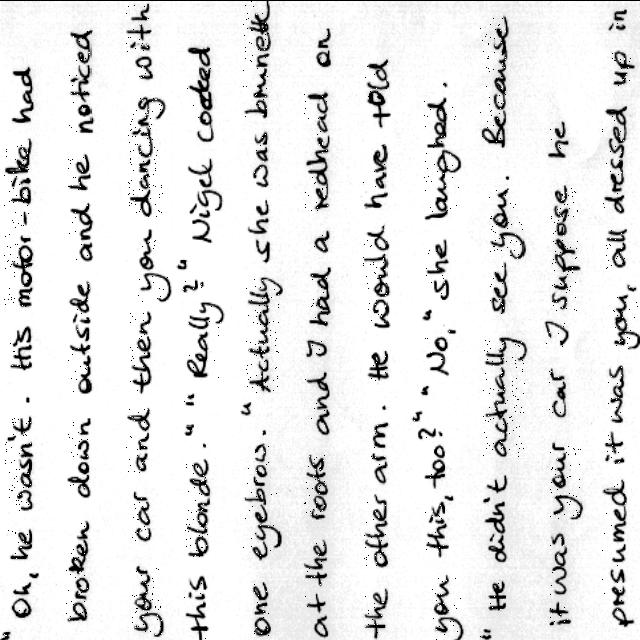 "Oh, he wasn't. His motor-bike had
broken down outside and he noticed
your car and then you dancing with
this blonde." "Really?" Nigel cocked
one eyebrow. "Actually she was brunette
at the roots and I had a redhead on
the other arm. He would have told
you this, too?" "No," she laughed.
"He didn't actually see you. Because
it was your car I suppose he
presumed it was you, all dressed up in